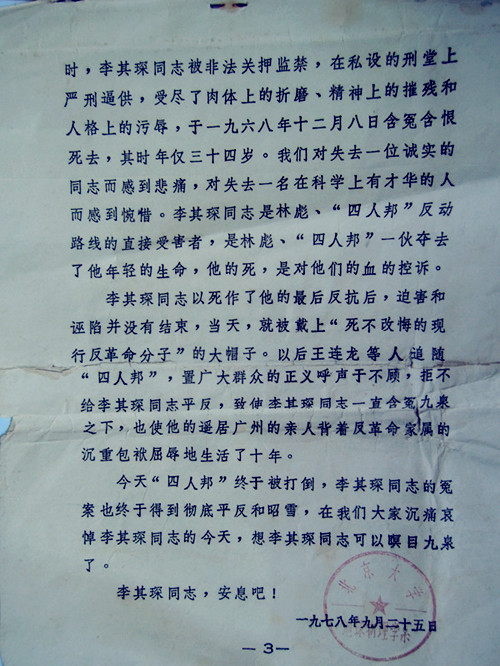 时，李其琛同志被非法关押监禁，在私设的刑堂上
严刑逼供，受尽了肉体上的折磨、精神上的摧残和
人格上的污辱，于一九六八年十二月八日含冤含恨
死去，其时年仅三十四岁。我们对失去一位诚实的
同志而感到悲痛，对失去一名在科学上有才华的人
而感到惋惜。李其琛同志是林彪、“四人邦”反动
路线的直接受害者，是林彪、“四人邦”一伙夺去
了他年轻的生命，他的死，是对他们的血的控诉。
李其琛同志以死作了他的最后反抗后，迫害和
诬陷并没有结束，当天，就被戴上“死不改悔的现
行反革命分子”的大帽子。以后王连龙等人追随
“四人邦”，置广大群众的正义呼声于不顾，拒不
给李其琛同志平反，致使李其琛同志一直含冤九泉
之下，也使他的遥居广州的亲人背着反革命家属的
沉重包袱屈辱地生活了十年。
今天“四人邦”终于被打倒，李其琛同志的冤
案也终于得到彻底平反和昭雪，在我们大家沉痛哀
悼李其琛同志的今天，想李其琛同志可以瞑目九泉
了。
李其琛同志，安息吧！
北京大学
一九七八年九月二十五日
—3—